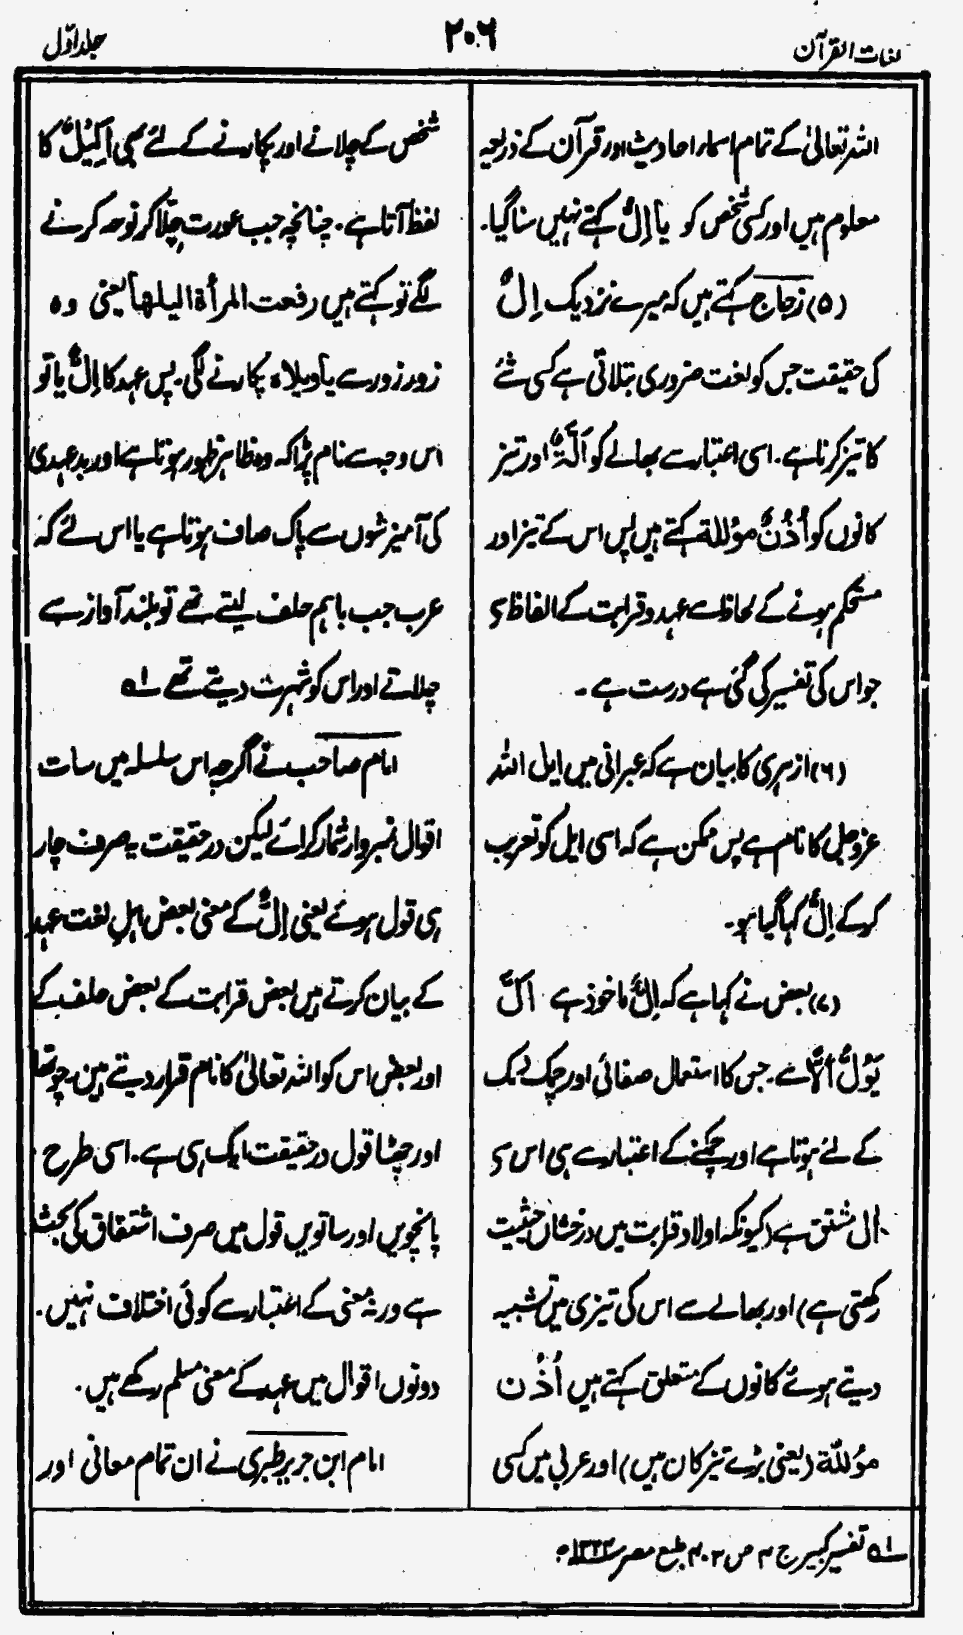 لغات القرآن
۲۰۶
جلد اوّل
اللہ تعالیٰ کے تمام اسماء احادیث اور قرآن کے ذریعہ
معلوم ہیں اور کسی شخص کو یا اِلُّ کہتے نہیں سنا گیا۔
(۵) زجاج کہتے ہیں کہ میرے نزدیک اِلٌّ
کی حقیقت جس کو لغت ضروری بتلاتی ہے کسی شئے
کا تیز کرنا ہے۔ اسی اعتبار سے بھالے کو اَلَّۃٌ اور تیز
کانوں کو اُذُنٌ مؤللة کہتے ہیں پس اس کے تیز اور
مستحکم ہونے کے لحاظ سے عہد و قرابت کے الفاظ سے
جو اس کی تفسیر کی گئی ہے درست ہے۔
(۶) ازہری کا بیان ہے کہ عبرانی میں ایل اللہ
عزوجل کا نام ہے پس ممکن ہے کہ اسی ایل کو تعریب
کر کے اِلٌّ کہا گیا ہو۔
(۷) بعض نے کہا ہے کہ اِلٌّ ماخوذ ہے اَلَّ
یَؤُلُّ اَلًّا سے۔ جس کا استعمال صفائی اور چمک دمک
کے لئے ہوتا ہے اور چمکنے کے اعتبار سے ہی اس سے
اِل مشتق ہے (کیونکہ اولاد قرابت میں درخشاں حیثیت
رکھتی ہے) اور بھالے سے اس کی تیزی میں تشبیہ
دیتے ہوئے کانوں کے متعلق کہتے ہیں اُذُن
مؤللّة (یعنی بڑے تیز کان ہیں) اور عربی میں کسی
شخص کے چلانے اور پکارنے کے لئے بھی اَلِیْلٌ کا
لفظ آتا ہے۔ چنانچہ جب عورت چلّا کر نوحہ کرنے
لگے تو کہتے ہیں رفعت المرأة الیلھا یعنی وہ
زور زور سے یا ویلاہ پکارنے لگی۔ پس عہد کا اِلٌّ یا تو
اس وجہ سے نام پڑا کہ وہ ظاہر ظہور ہوتا ہے اور بدعہدی
کی آمیزشوں سے پاک صاف ہوتا ہے یا اس لئے کہ
عرب جب باہم حلف لیتے تھے تو بلند آواز سے
چلاتے اور اس کو شہرت دیتے تھے ۱؎
امام صاحب نے اگرچہ اس سلسلہ میں سات
اقوال نمبروار شمار کرائے لیکن درحقیقت یہ صرف چار
ہی قول ہوئے یعنی اِلٌّ کے معنی بعض اہلِ لغت عہد
کے بیان کرتے ہیں بعض قرابت کے بعض حلف کے
اور بعض اس کو اللہ تعالیٰ کا نام قرار دیتے ہیں۔ چوتھا
اور چھٹا قول درحقیقت ایک ہی ہے۔ اسی طرح
پانچویں اور ساتویں قول میں صرف اشتقاق کی بحث
ہے ورنہ معنی کے اعتبار سے کوئی اختلاف نہیں۔
دونوں اقوال میں عہد کے معنی مسلم رکھے ہیں۔
امام ابن جریر طبری نے ان تمام معانی اور
۱؎ تفسیر کبیر ج ۴ ص ۴۰۲ طبع مصر ۱۳۲۴ھ